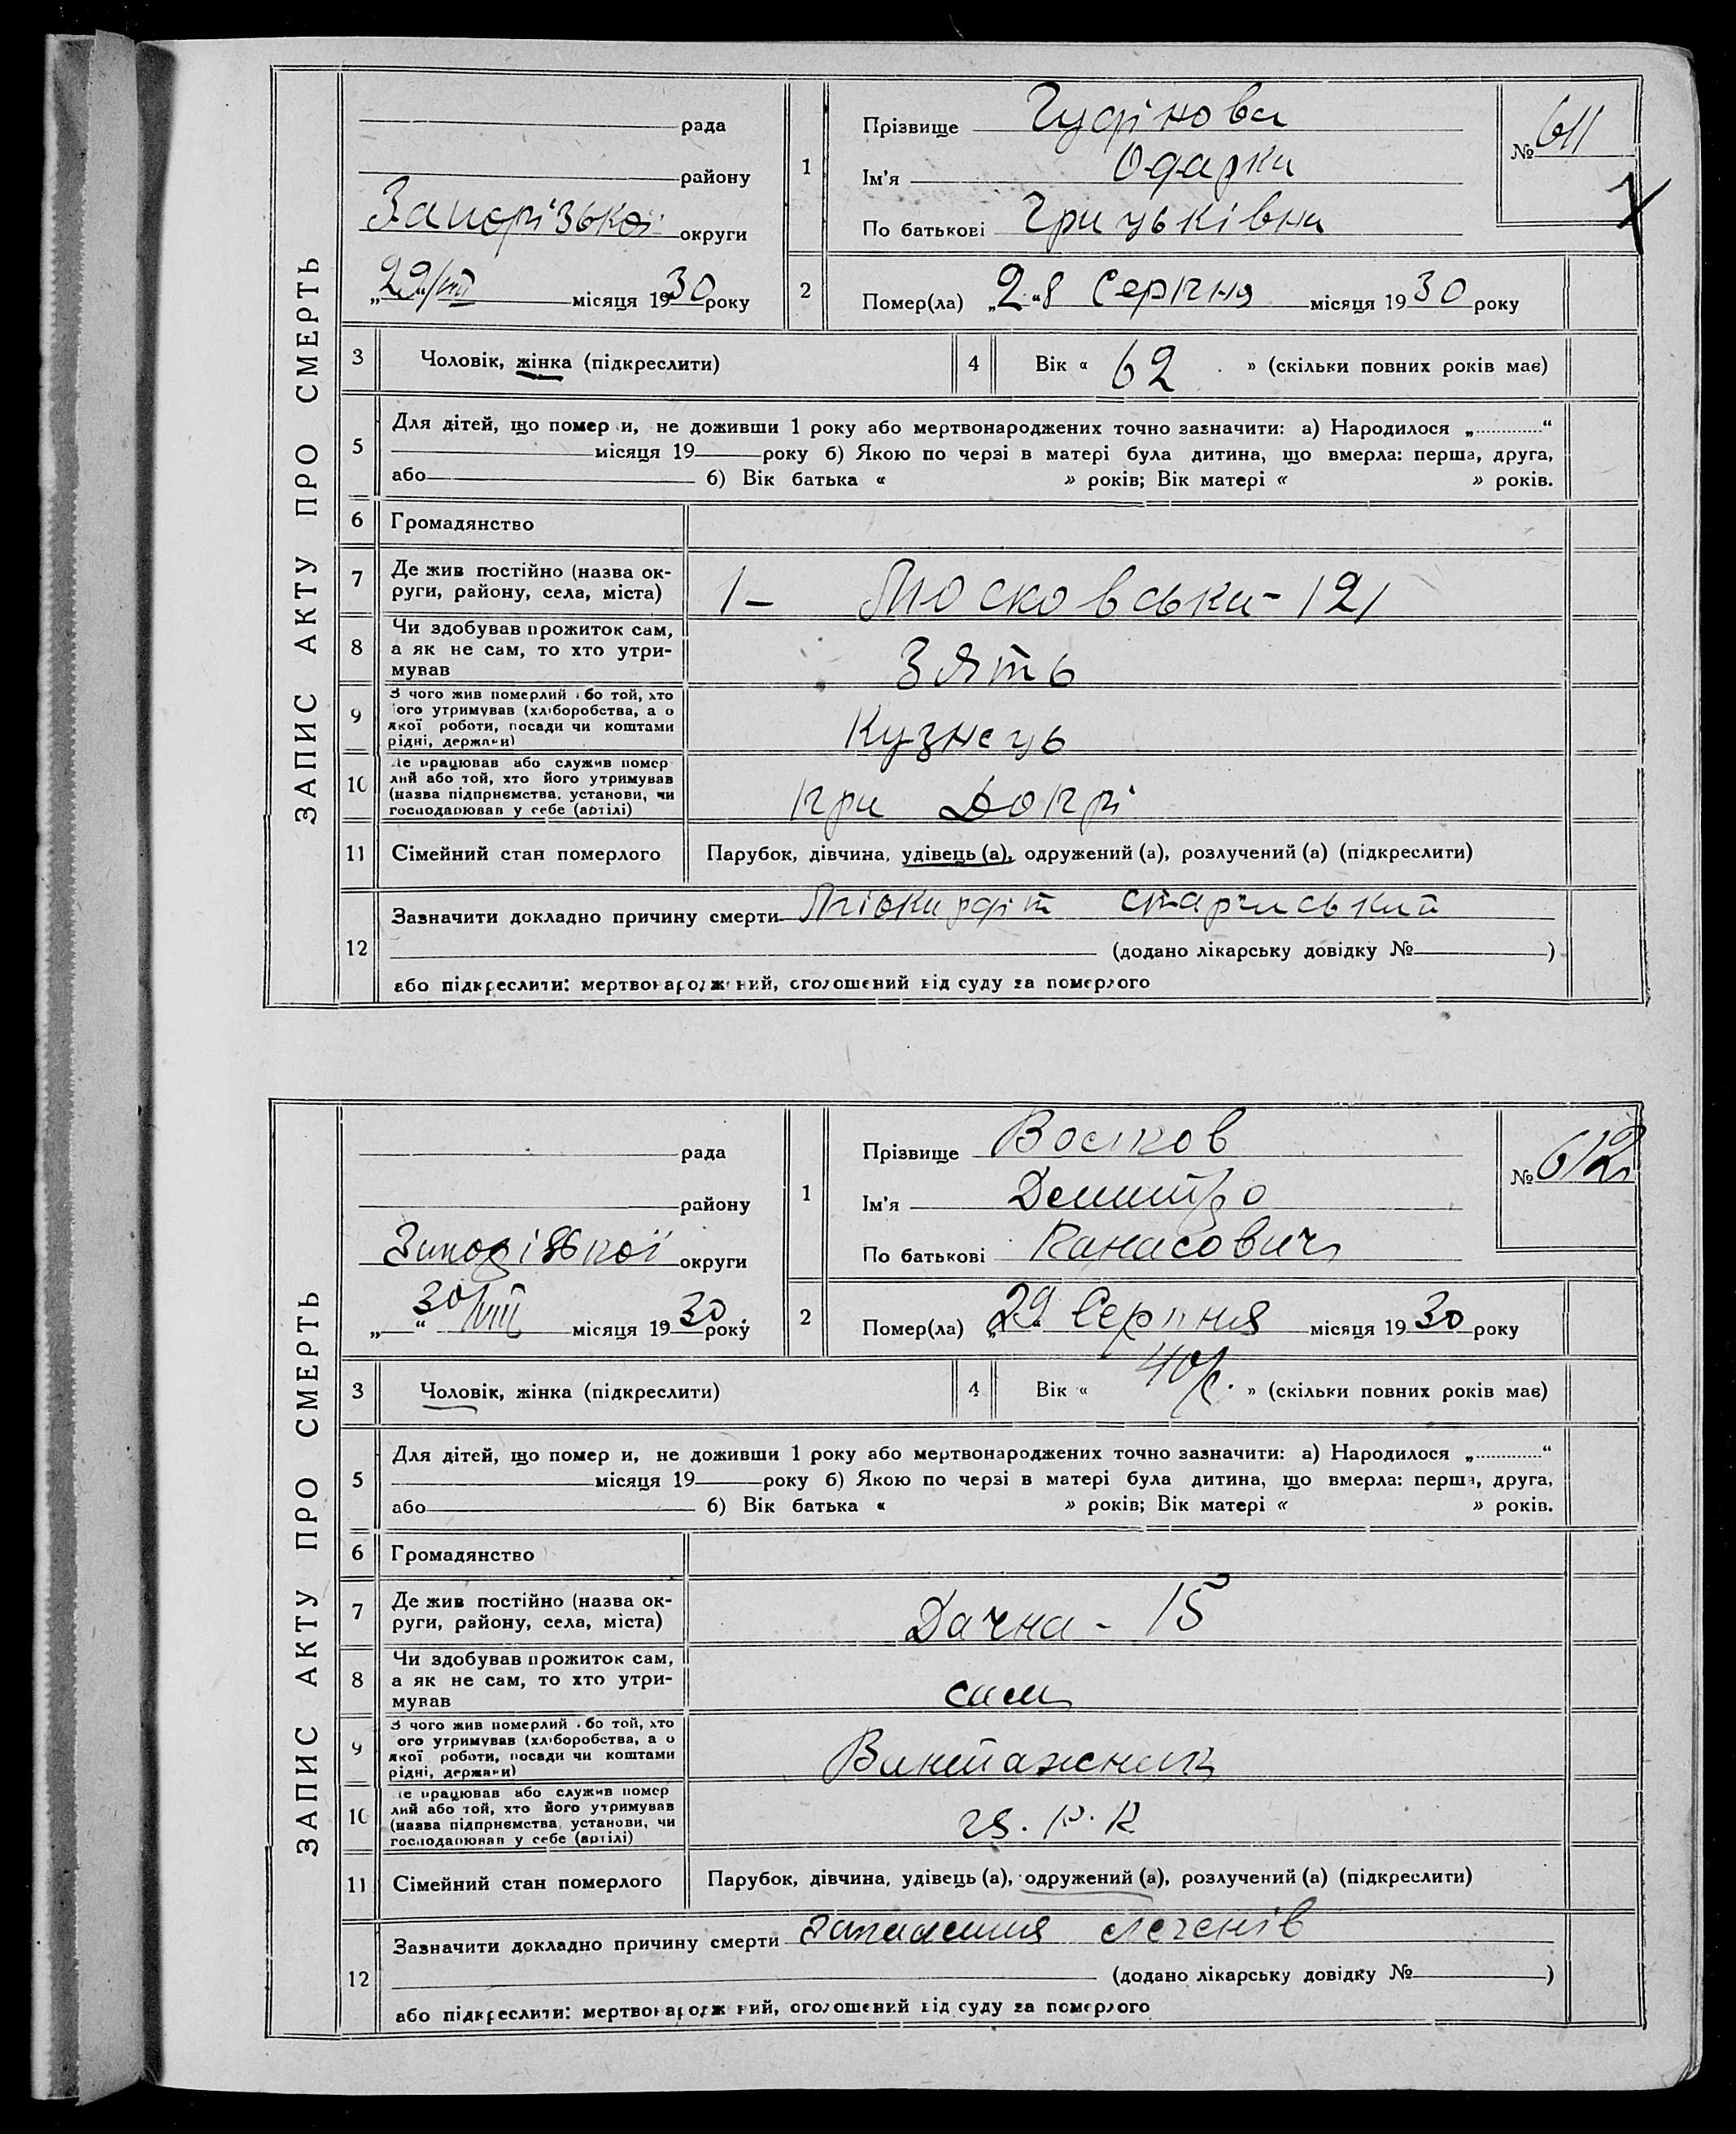 ЗАПИС АКТУ ПРО СМЕРТЬ
рада
району
Запорізької округи
29/VIII місяця 1930 року
1
Прізвище
Ім'я Одарка
По батькові Грицьківна
№ 611
2
Помер(ла) „28 Серпня місяця 1930 року
3
Чоловік, жінка (підкреслити)
4
Вік « 62 » (скільки повних років має)
5
Для дітей, що помер и, не доживши 1 року або мертвонароджених точно зазначити: а) Народилося „ “
місяця 19 року б) Якою по черзі в матері була дитина, що вмерла: перша, друга,
або б) Вік батька « » років; Вік матері « » років.
6
Громадянство
7
Де жив постійно (назва ок-
руги, району, села, міста)
1 – Московська - 121
8
Чи здобував прожиток сам,
а як не сам, то хто утри-
мував
Зять
9
З чого жив померлий або той, хто
його утримував (хліборобства, а о
якої роботи, посади чи коштами
рідні, держави)
Кузнець
10
Де працював або служив помер
лий або той, хто його утримував
(назва підприємства, установи, чи
господарював у себе (артілі)
при Допрі
11
Сімейний стан померлого
Парубок, дівчина, удівець (а), одружений (а), розлучений (а) (підкреслити)
12
Зазначити докладно причину смерти Міокардіт старчиський
(додано лікарську довідку № )
або підкреслити: мертвонароджений, оголошений від суду за померлого
ЗАПИС АКТУ ПРО СМЕРТЬ
рада
району
Запорізької округи
„ “ 30/VIII місяця 1930 року
1
Прізвище
Ім'я Демитро
По батькові Панасович
№ 612
2
Помер(ла) „29 Серпня місяця 1930 року
3
Чоловік, жінка (підкреслити)
4
Вік « 40 р. » (скільки повних років має)
5
Для дітей, що помер и, не доживши 1 року або мертвонароджених точно зазначити: а) Народилося „ “
місяця 19 року б) Якою по черзі в матері була дитина, що вмерла: перша, друга,
або б) Вік батька « » років; Вік матері « » років.
6
Громадянство
7
Де жив постійно (назва ок-
руги, району, села, міста)
Дачна - 15
8
Чи здобував прожиток сам,
а як не сам, то хто утри-
мував
сам
9
З чого жив померлий або той, хто
його утримував (хліборобства, а о
якої роботи, посади чи коштами
рідні, держави)
Вантажник
10
Де працював або служив помер
лий або той, хто його утримував
(назва підприємства, установи, чи
господарював у себе (артілі)
11
Сімейний стан померлого
Парубок, дівчина, удівець (а), одружений (а), розлучений (а) (підкреслити)
12
Зазначити докладно причину смерти запалення легенів
(додано лікарську довідку № )
або підкреслити: мертвонароджений, оголошений від суду за померлого